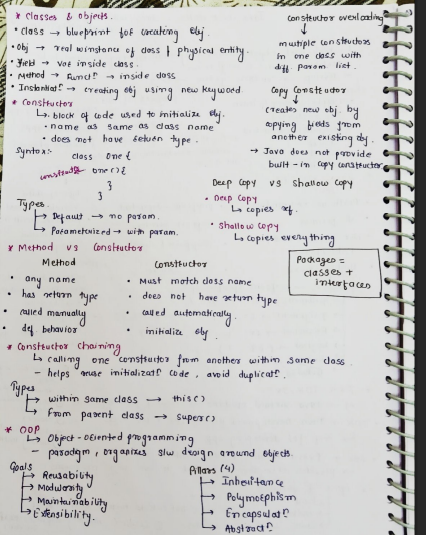 * Classes & objects.
• Class → blueprint for creating obj.
• Obj → real winstance of class & physical entity.
• Field → var inside class.
• Method → funcⁿ → inside class
• Instantiatⁿ → creating obj using new keyword.
* Constructor
↳ block of code used to initialize obj.
• name as same as class name
• does not have return type.
Syntax:-
class One {
constructor One () {
}
}
Types
↳ Default → no param.
↳ Parameterized → with param.
Constructor overloading
↓
multiple constructors
in one class with
diff param list.
Copy Constructor
↓
creates new obj by
copying fields from
another existing obj.
→ Java does not provide
built-in copy constructor
Deep Copy vs Shallow Copy
• Deep Copy
↳ copies ref.
• Shallow Copy
↳ copies everything
Packages =
classes +
interfaces
* Method vs Constructor
Method Constructor
• any name • Must match class name
• has return type • does not have return type
• called manually • called automatically.
• def behavior • initialize obj
* Constructor Chaining
↳ calling one constructor from another within same class.
- helps reuse initializatⁿ code, avoid duplicatⁿ.
Types
↳ within same class → this()
↳ From parent class → super()
* OOP
↳ Object-Oriented programming
- paradgm, organizes s/w design around objects.
Goals
↳ Reusability
→ Modularity
→ Maintainability
→ Extensibility.
Pillars (4)
→ Inheritance
→ Polymorphism
→ Encapsulatⁿ
→ Abstractⁿ